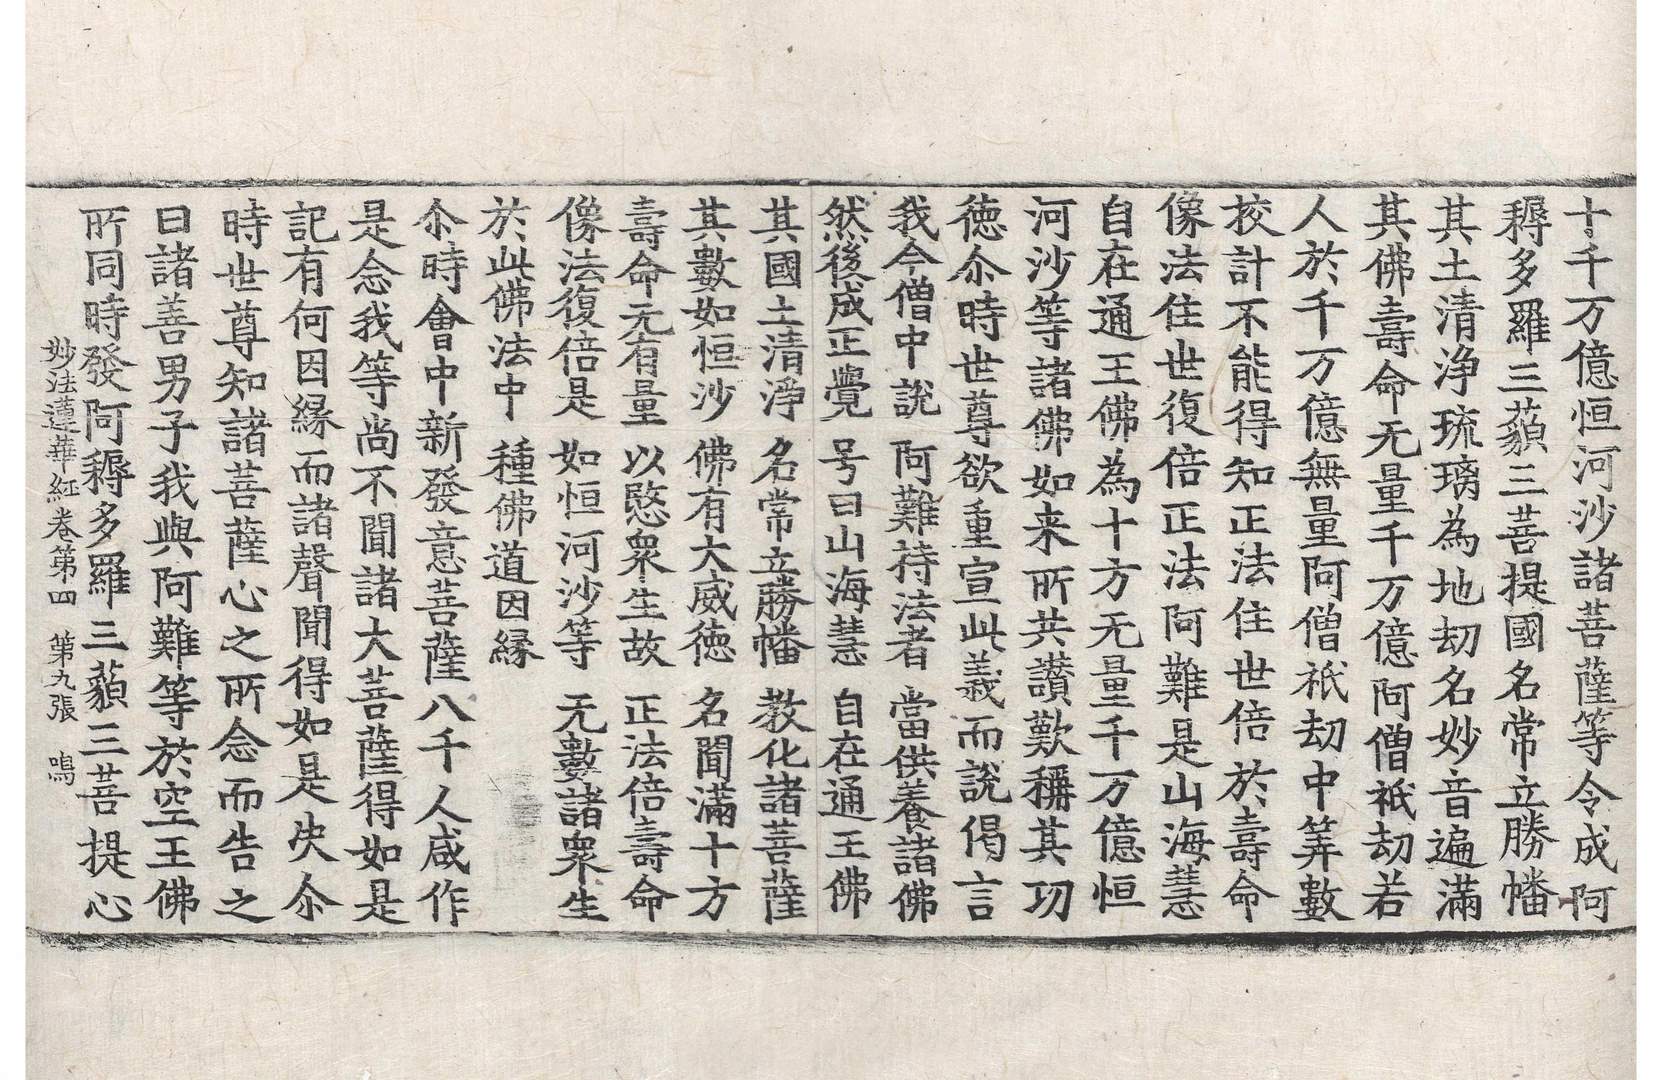 十千万億恒河沙諸菩薩等令成阿
耨多羅三藐三菩提國名常立勝幡
其土清淨琉璃為地劫名妙音遍滿
其佛壽命无量千万億阿僧祇劫若
人於千万億無量阿僧祇劫中筭數
挍計不能得知正法住世倍於壽命
像法住世復倍正法阿難是山海慧
自在通王佛為十方无量千万億恒
河沙等諸佛如来所共讃歎稱其功
徳尒時世尊欲重宣此義而說偈言
我今僧中說 阿難持法者 當供養諸佛
然後成正覺 号曰山海慧 自在通王佛
其國土清淨 名常立勝幡 教化諸菩薩
其數如恒沙 佛有大威徳 名聞滿十方
壽命无有量 以愍衆生故 正法倍壽命
像法復倍是 如恒河沙等 无數諸衆生
於此佛法中 種佛道因縁
尒時會中新發意菩薩八千人咸作
是念我等尚不聞諸大菩薩得如是
記有何因縁而諸聲聞得如是决尒
時世尊知諸菩薩心之所念而告之
曰諸善男子我與阿難等於空王佛
所同時發阿耨多羅三藐三菩提心
妙法蓮華經卷第四 第九張 鳴